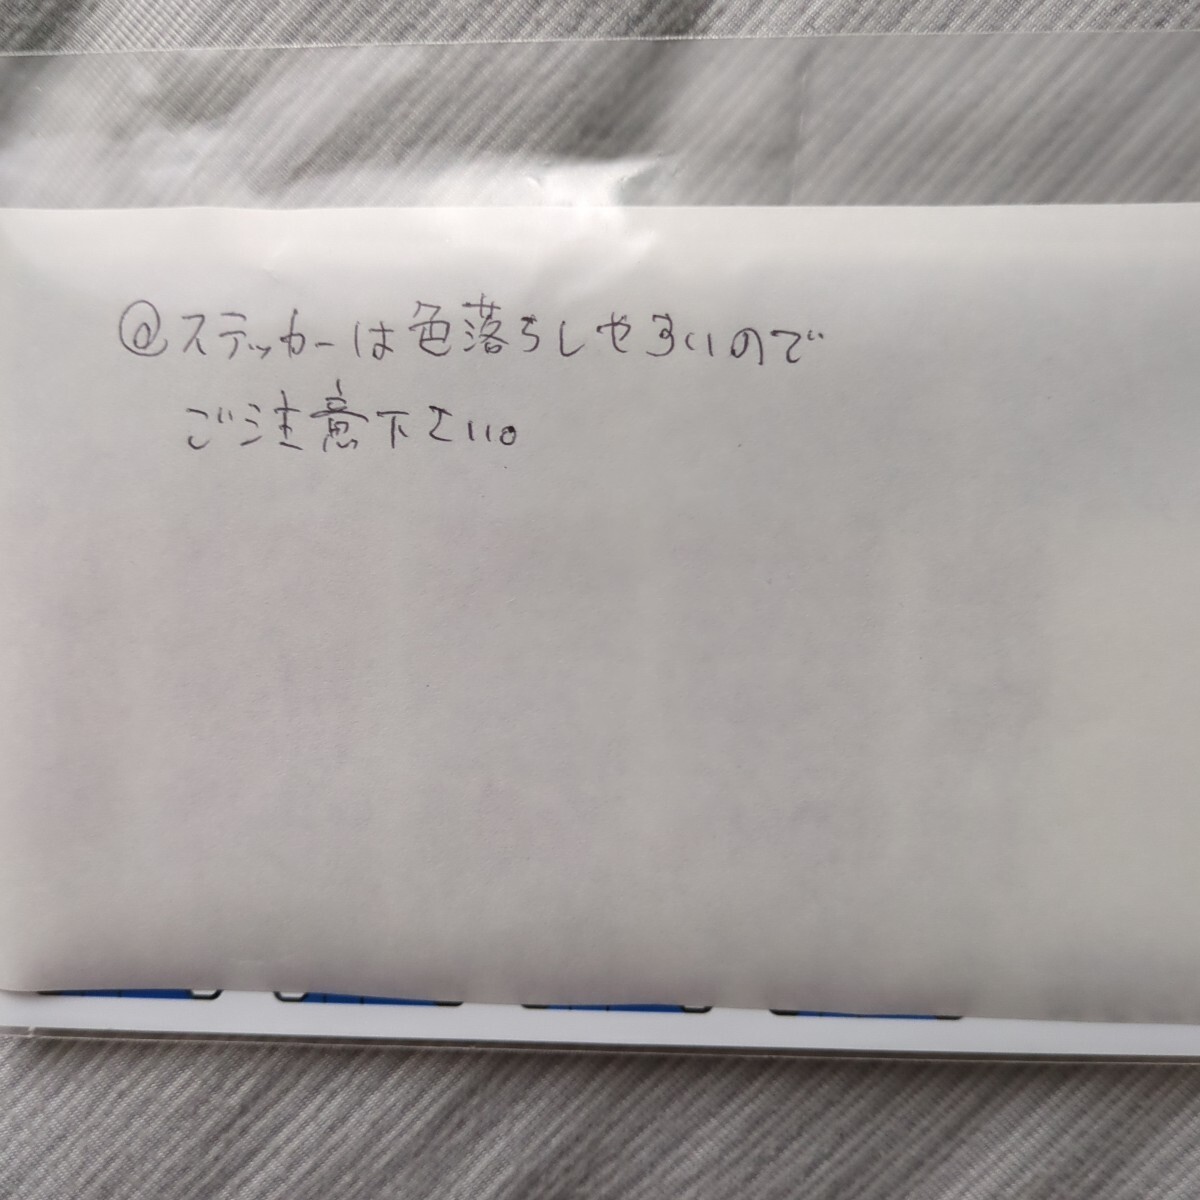 @ステッカーは色落ちしやすいので
ご注意下さい。